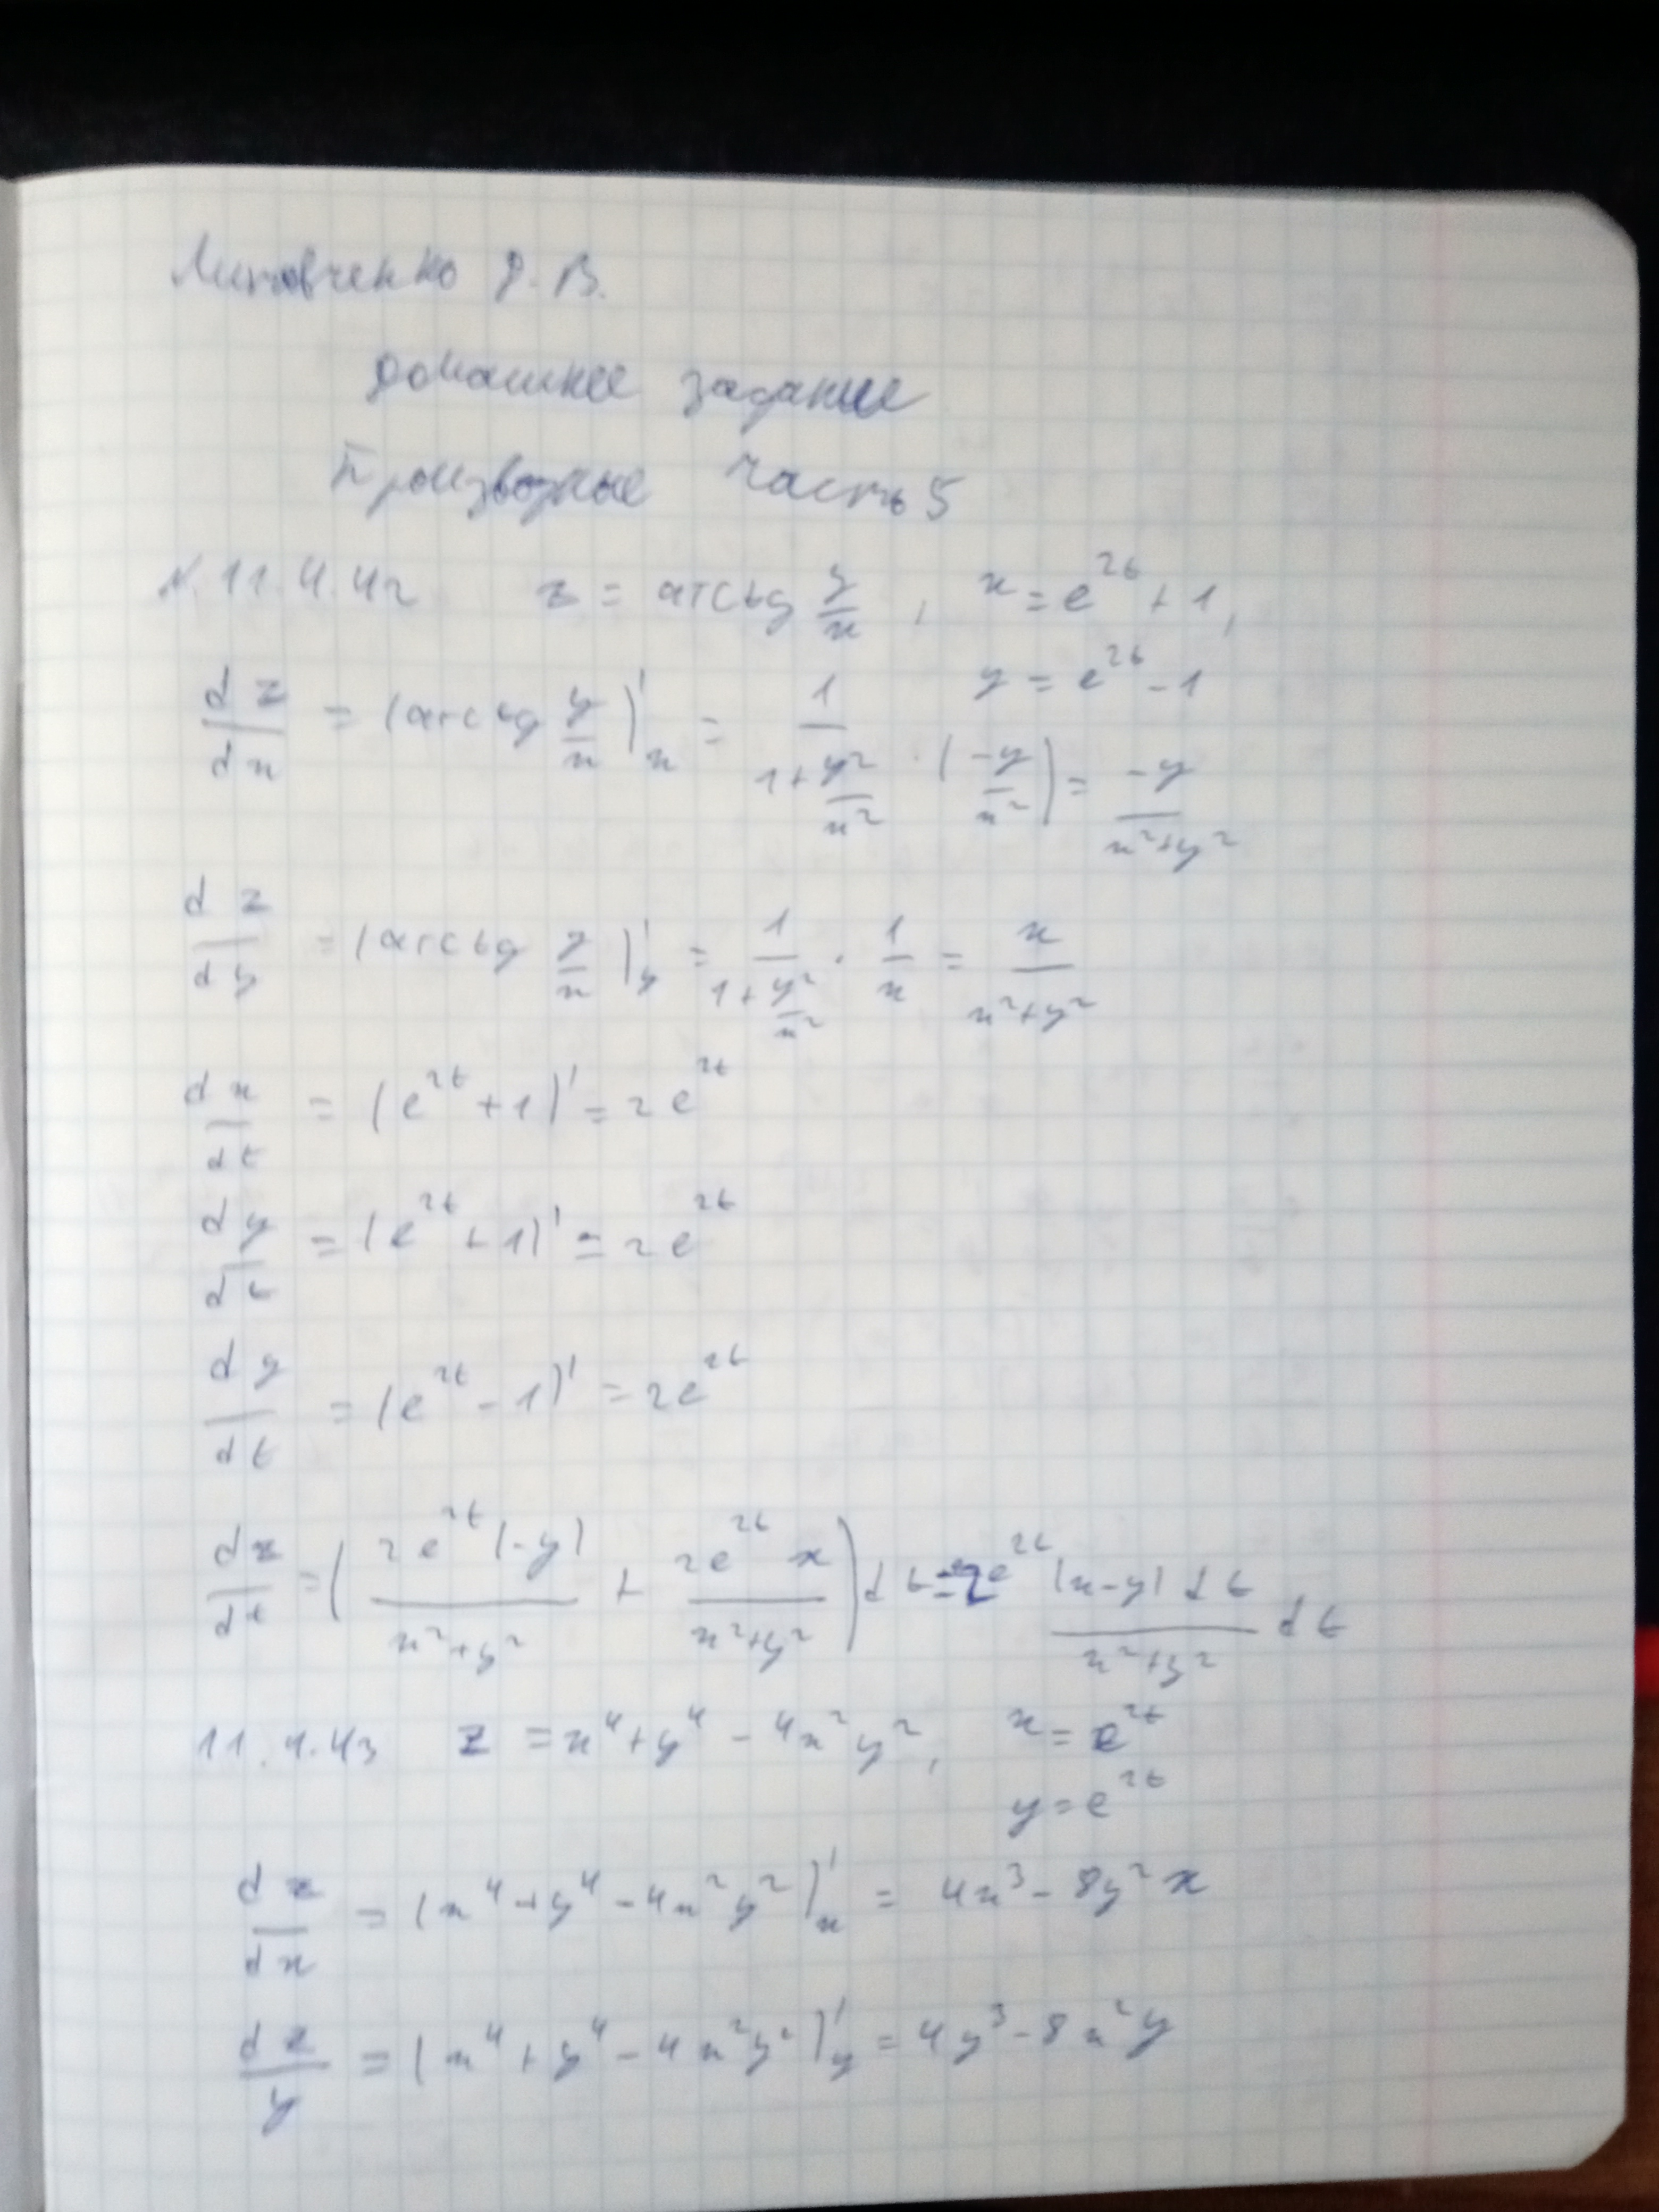 Литовченко Я. В.
Домашнее задание
Производные часть 5
N. 11.4.42 z = arctg y/x , x = e^2t + 1,
y = e^2t - 1
dz/dx = (arctg y/x)'x = 1/(1+y²/x²) · (-y/x²) = -y/(x²+y²)
dz/dy = (arctg y/x)'y = 1/(1+y²/x²) · 1/x = x/(x²+y²)
dx/dt = (e^2t + 1)' = 2e^2t
dy/dt = (e^2t + 1)' = 2e^2t
dy/dt = (e^2t - 1)' = 2e^2t
dz/dt = (2e^2t (-y)/(x²+y²) + 2e^2t x/(x²+y²)) dt = 2e^2t (x-y) dt/(x²+y²) dt
11.4.43 z = x⁴ + y⁴ - 4x²y², x = e^2t
y = e^2t
dz/dx = (x⁴ + y⁴ - 4x²y²)'x = 4x³ - 8y²x
dz/y = (x⁴ + y⁴ - 4x²y²)'y = 4y³ - 8x²y